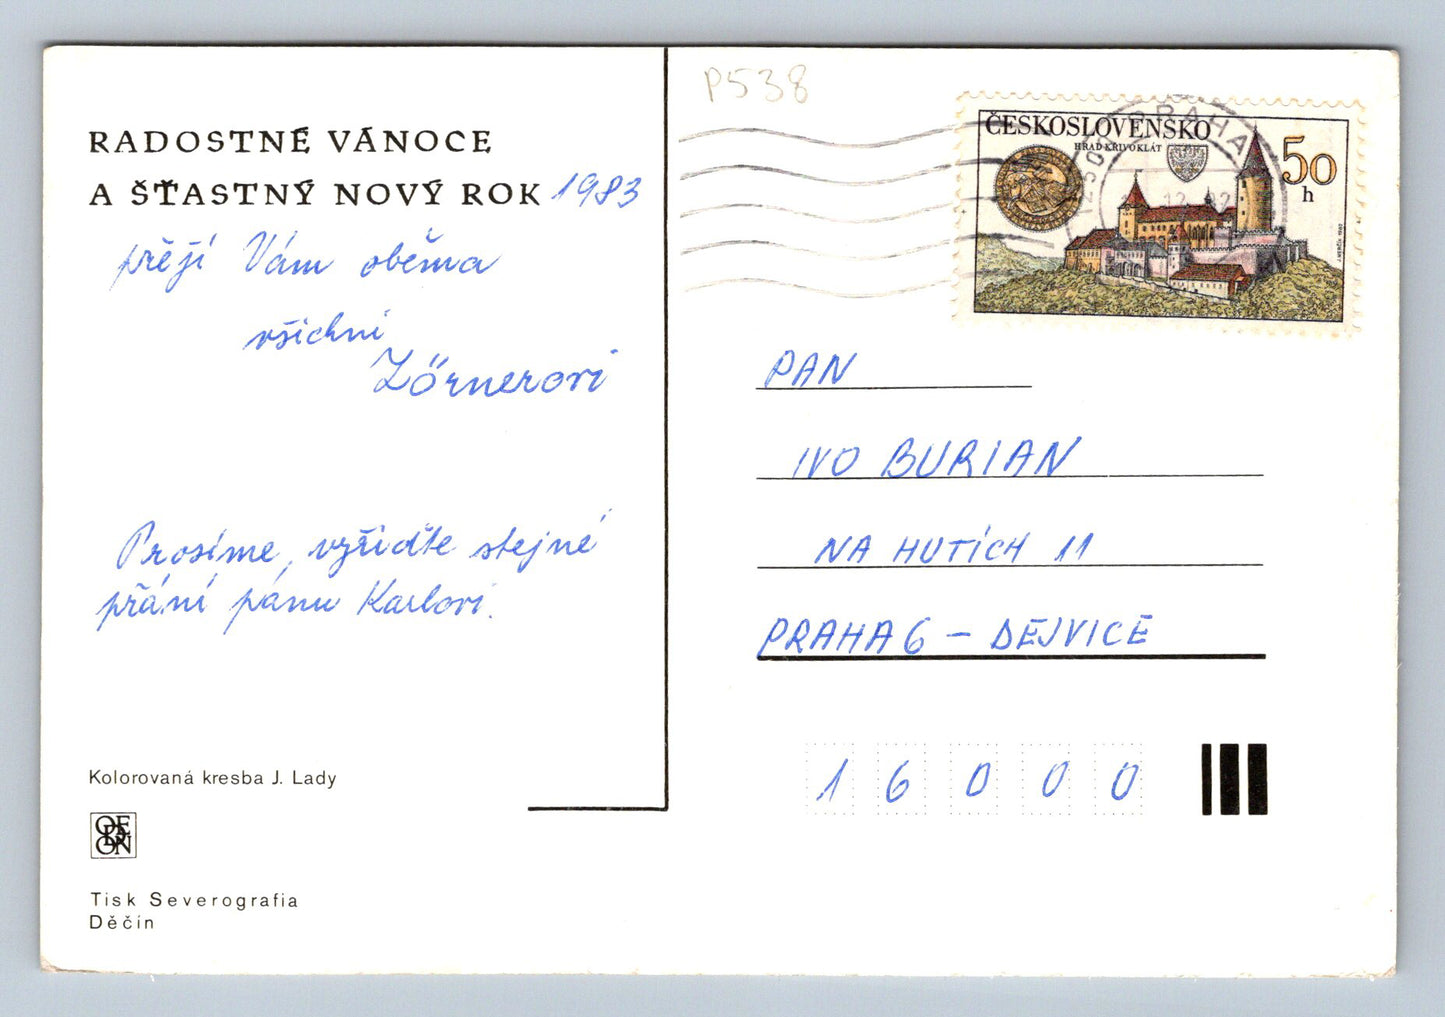 P538
RADOSTNÉ VÁNOCE
A ŠŤASTNÝ NOVÝ ROK 1983
přejí Vám oběma
všichni
Zörnerovi
Prosíme, vyřiďte stejné
přání pánu Karlovi.
Kolorovaná kresba J. Lady
ODEON
Tisk Severografia
Děčín
ČESKOSLOVENSKO
HRAD KŘIVOKLÁT
50
h
PRAHA
PAN
IVO BURIAN
NA HUTÍCH 11
PRAHA 6 – DEJVICE
16000